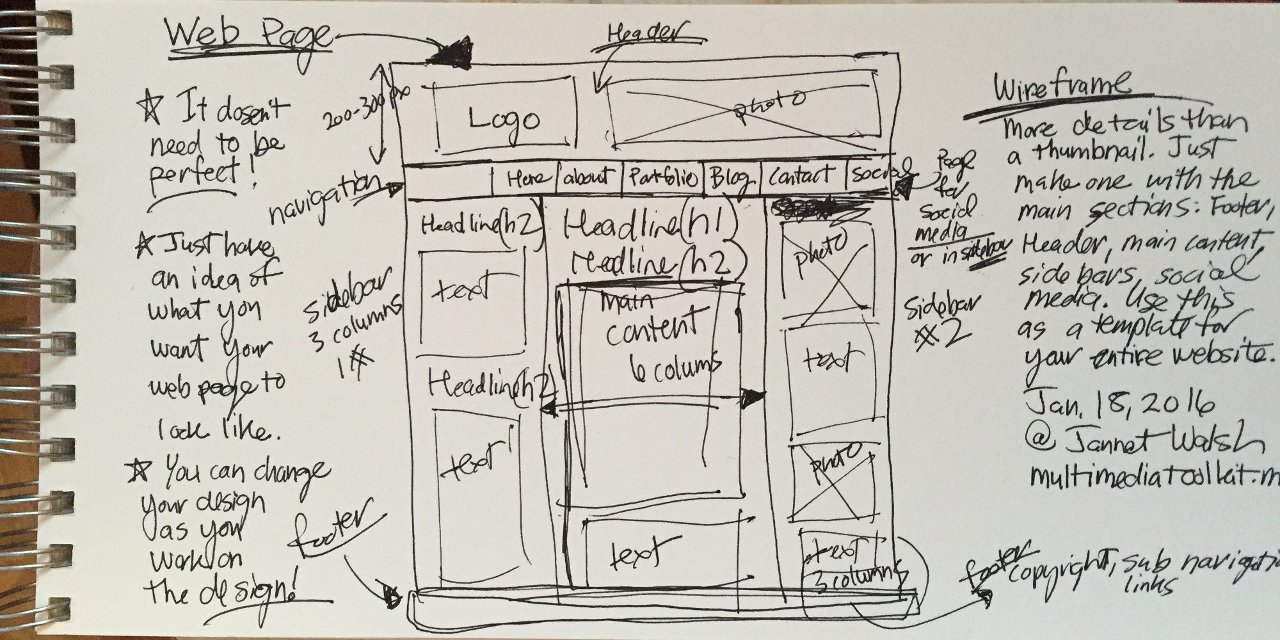 Web Page
☆ It doesn't
need to be
perfect!
☆ Just have
an idea of
what you
want your
web page to
look like.
☆ You can change
your design
as you
work on
the design!
Header
200-300px
Logo
photo
navigation
Home
about
Portfolio
Blog
Contact
Social
Page
for
social
media
or in sidebar
sidebar
3 columns
1#
Headline(h2)
text
Headline(h2)
text
Headline(h1)
Headline(h2)
main
content
6 colums
text
photo
text
photo
text
3 columns
sidebar
#2
footer
footer
copyright, sub navigati
links
Wireframe
more details than
a thumbnail. Just
make one with the
main sections: Footer,
Header, main content,
side bars, social
media. Use this
as a template for
your entire website.
Jan. 18, 2016
@ Jannet Walsh
multimediatoolkit.m